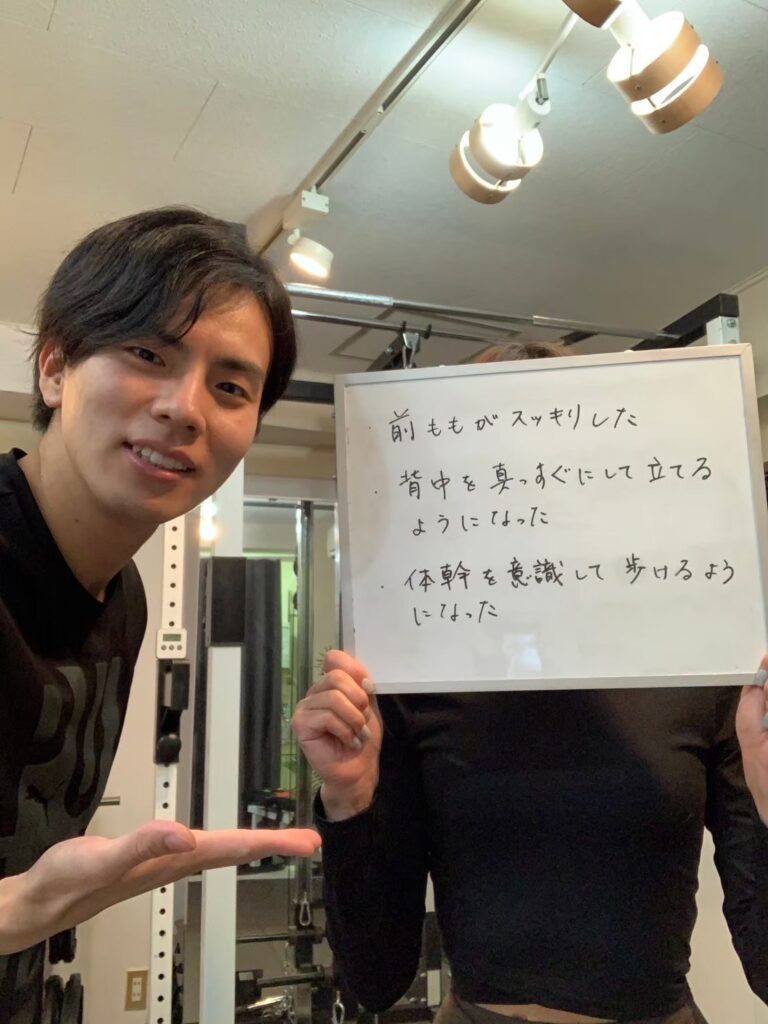 ・前ももがスッキリした
・背中を真っすぐにして立てる
ようになった
・体幹を意識して歩けるよう
になった